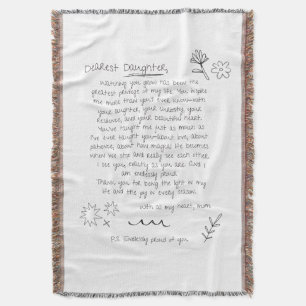 Dearest Daughter,
Watching you grow has been the
greatest privilege of my life. You inspire
me more than you'll ever know—with
your laughter, your curiosity, your
kindness, and your beautiful heart.
You've taught me just as much as
I've ever taught you—about love, about
patience, about how magical life becomes
when we slow and really see each other.
I see you exactly as you are, and I
am endlessly proud.
Thank you for being the light in my
life and the joy in every season.
With all my heart, Mom
P.S. Endlessly proud of you